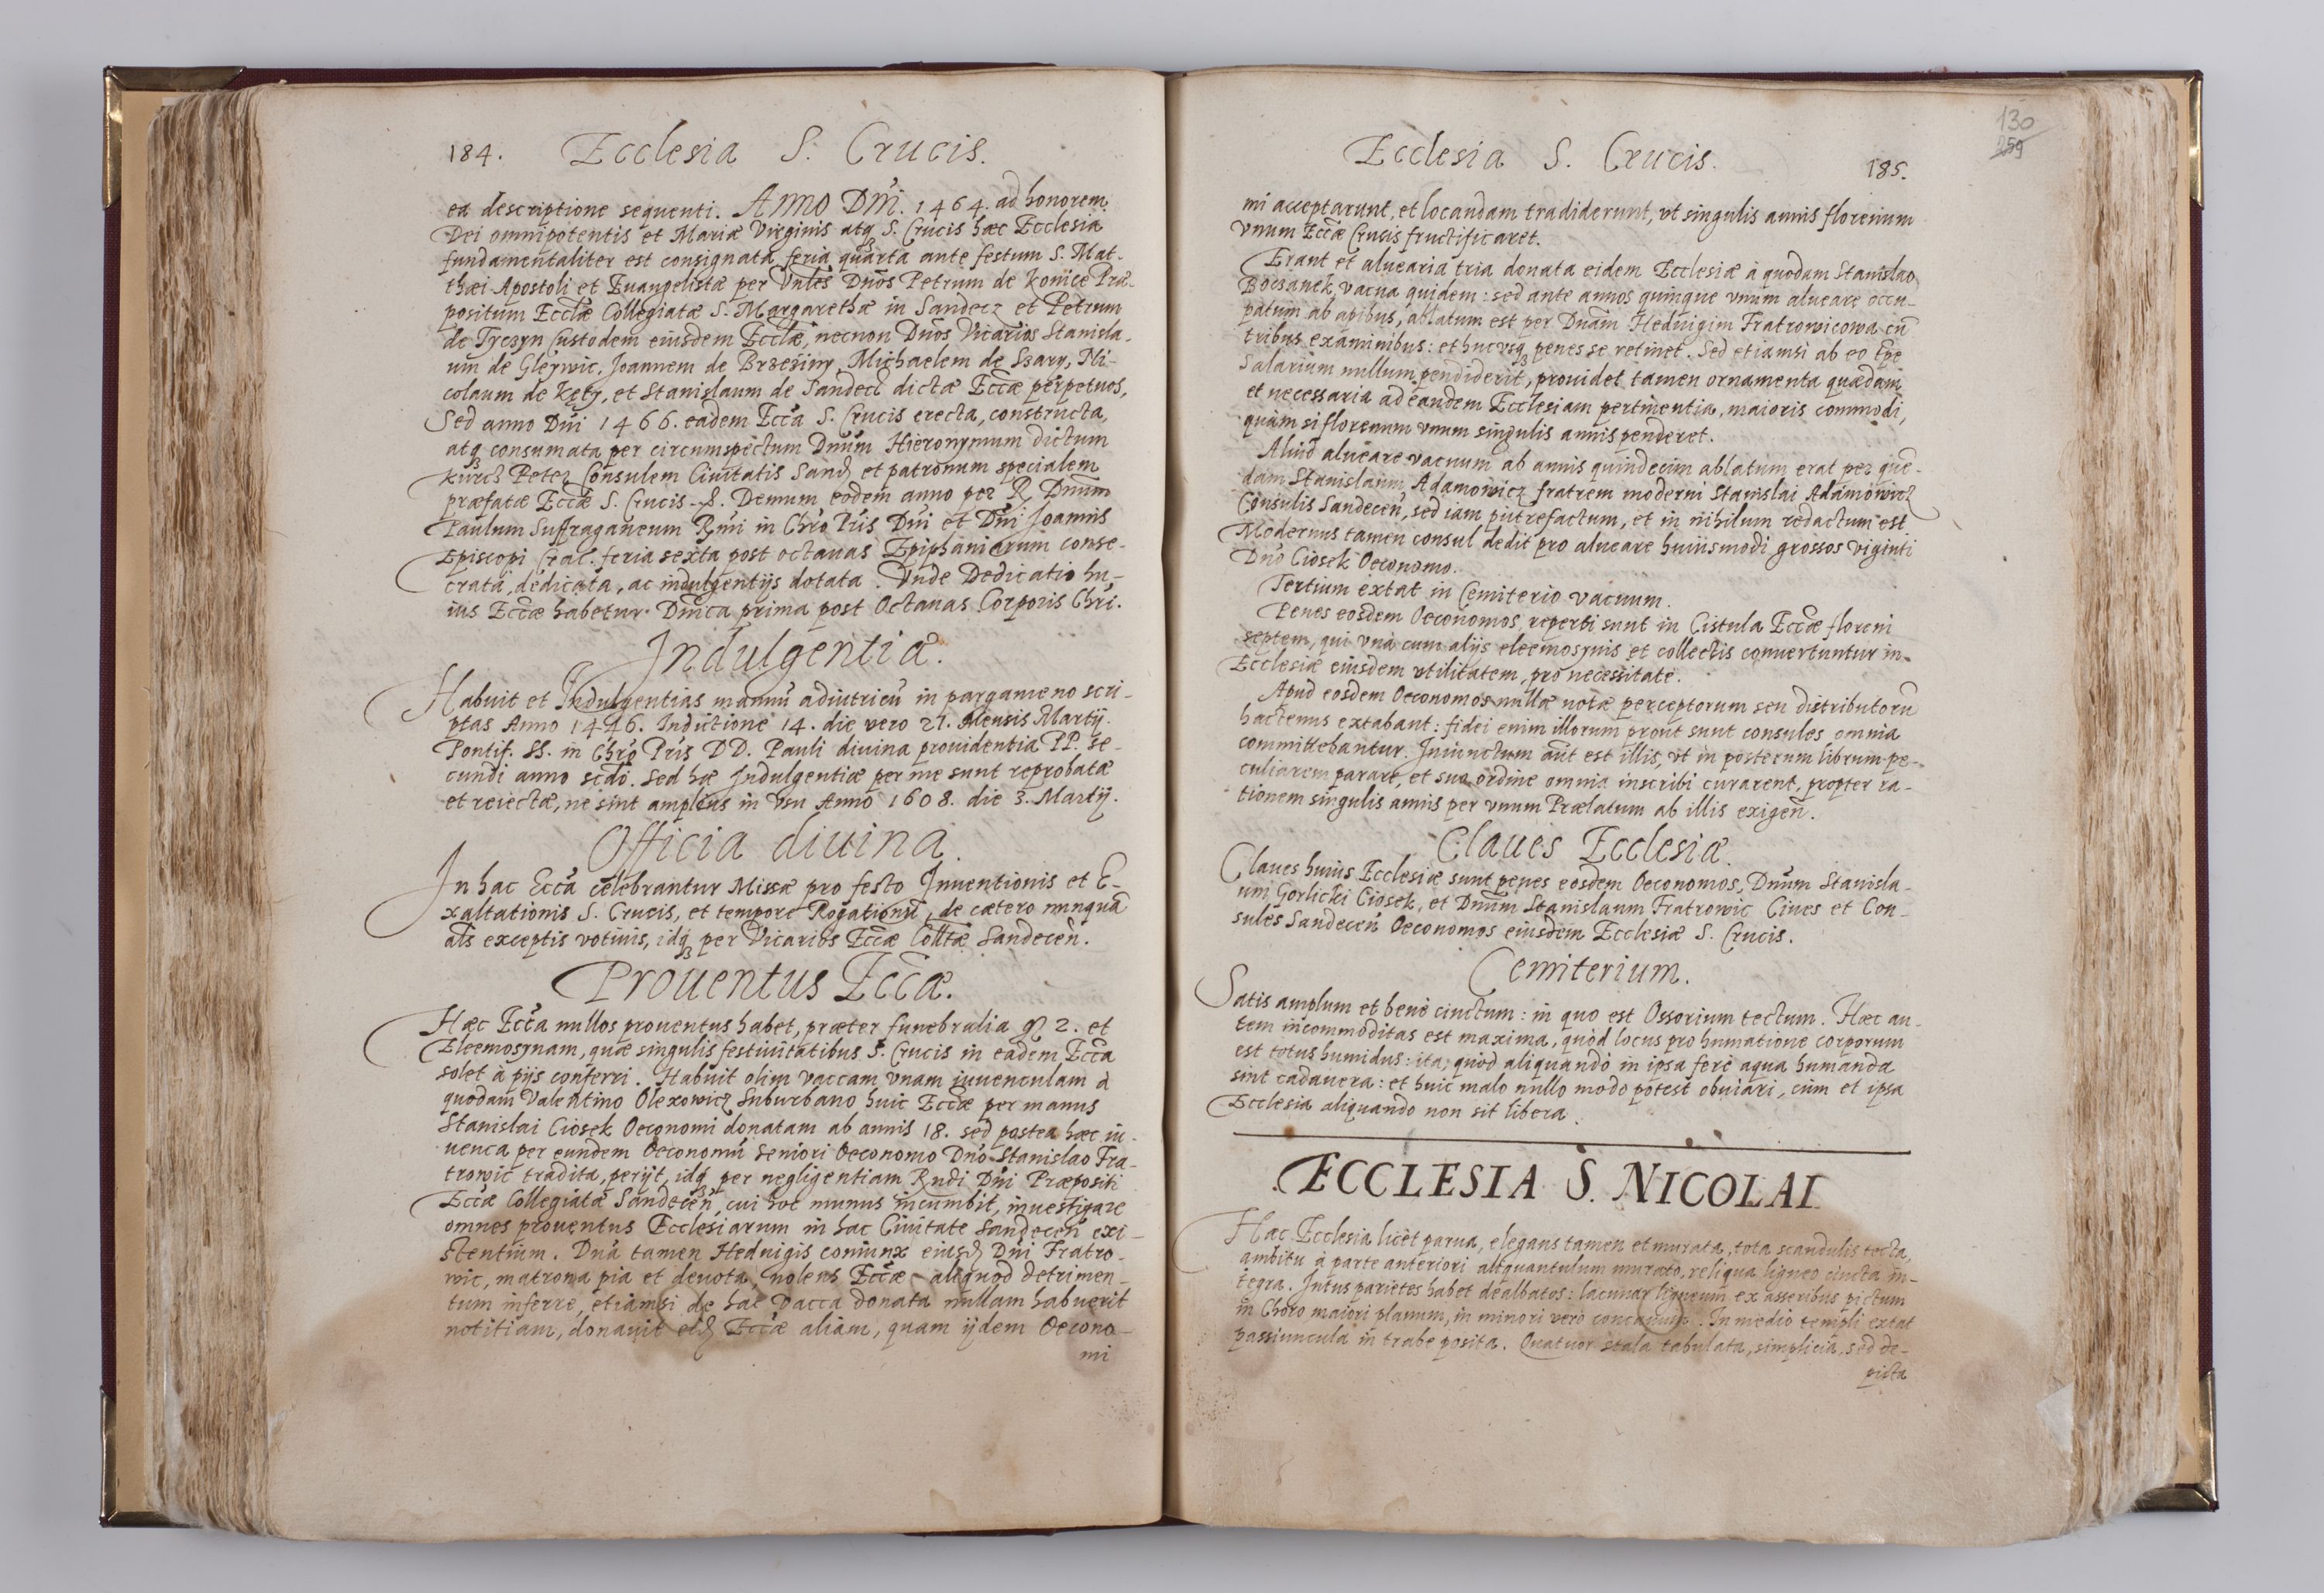 184. Ecclesia S. Crucis.
ea descriptione sequenti. Anno Dñi. 1464. ad honorem
Dei omnipotentis et Mariæ Virginis atq S. Crucis hæc Ecclesia
fundamentaliter est consignata feria quarta ante festum S. Mat-
thæi Apostoli et Euangelistæ per Vnles Dños Petrum de Konice Præ-
positum Ecclæ Collegiatæ S. Margarethæ in Sandecz et Petrum
de Tyczyn Custodem eiusdem Ecclæ, necnon Dños Vicarios Stanisla-
um de Gleywic, Joannem de Brzeziny, Michaelem de Szary, Ni-
colaum de Kęty, et Stanislaum de Sandecz dictæ Eccæ perpetuos,
Sed anno Dñi 1466. eadem Ecca S. Crucis erecta, constructa,
atq consumata per circumspectum Dnum Hieronymum dictum
Peter Consulem Ciuitatis Sand et patronum specialem
præfatæ Eccæ S. Crucis. Demum eodem anno per R Dnum
Paulum Suffraganeum Rmi in Chro Pris Dni et Dni Joannis
Episcopi Crac. feria sexta post octauas Epiphaniarum conse-
crata, dedicata, ac indulgentijs dotata. Vnde Dedicatio hu-
ius Eccæ habetur. Dnica prima post Octauas Corporis Chri.
Indulgentiæ.
Habuit et Indulgentias manu adiutricu in pargameno scri-
ptas Anno 1446. Indictione 14. die vero 21. Mensis Martij.
Pontif. SS. in Chro Pris DD. Pauli diuina prouidentia PP. se-
cundi anno scdo. Sed hæ Indulgentiæ per me sunt reprobatæ
et reiectæ, ne sint amplius in vsu Anno 1608. die 3. Martij.
Officia diuina.
In hac Ecca celebrantur Missæ pro festo Inuentionis et E-
xaltationis S. Crucis, et tempore Rogationu, de cætero nunqua
als exceptis votiuis, idq per Vicarios Eccæ Colltæ Sandecen.
Prouentus Eccæ.
Hæc Ecca nullos prouentus habet, præter funebralia 2. et
Eleemosynam, quæ singulis festiuitatibus S. Crucis in eadem Ecca
solet à pijs conferri. Habuit olim vaccam vnam iuuenculam à
quodam Valentino Olexowicz Suburbano huic Eccæ per manus
Stanislai Ciosek Oeconomi donatam ab annis 18. sed postea hæc iu-
uenca per eundem Oeconomu seniori Oeconomo Dno Stanislao Fra-
trowic tradita, perijt, idq per negligentiam Rndi Dni Præpositi
Eccæ Collegiatæ Sandecen, cui hoc munus incumbit, inuestigare
omnes prouentus Ecclesiarum in hac Ciuitate Sandecen exi-
stentium. Dna tamen Heduigis coniunx eiusd Dni Fratro-
wic, matrona pia et deuota, nolens Eccæ aliquod detrimen-
tum inferre, etiamsi de hac vacca donata nullam habuerit
notitiam, donauit eid Eccæ aliam, quam ijdem Oecono-
mi
Ecclesia S. Crucis. 185.
130
259
mi acceptarunt, et locandam tradiderunt, vt singulis annis florenum
vnum Eccæ Crucis fructificaret.
Erant et aluearia tria donata eidem Ecclesiæ à quodam Stanislao
Bocsanek, vacua quidem: sed ante annos quinque vnum alueare occu-
patum ab apibus, ablatum est per Dnam Heduigim Fratrowicowa cu
tribus examinibus: et hucvsq penes se retinet. Sed etiamsi ab eo tpe
Salarium nullum pendiderit, prouidet tamen ornamenta quædam
et necessaria ad eandem Ecclesiam pertinentia, maioris commodi,
quàm si florenum vnum singulis annis penderet.
Aliud alueare vacuum ab annis quindecim ablatum erat per que-
dam Stanislaum Adamowicz fratrem moderni Stanislai Adamowicz
Consulis Sandecen, sed iam putrefactum, et in nihilum redactum est
Modernus tamen consul dedit pro alueare huiusmodi grossos viginti
Dno Ciosek Oeconomo.
Tertium extat in Cemiterio vacuum.
Penes eosdem Oeconomos reperti sunt in Cistula Eccæ floreni
septem, qui vnà cum alijs eleemosynis et collectis conuertuntur in
Ecclesiæ eiusdem vtilitatem, pro necessitate.
Apud eosdem Oeconomos nullæ notæ perceptorum seu distributoru
hactenus extabant: fidei enim illorum prout sunt consules omnia
committebantur. Iniunctum aut est illis, vt in posterum librum pe-
culiarem parare, et suo ordine omnia inscribi curarent, propter ra-
tionem singulis annis per vnum Prælatum ab illis exigen.
Claues Ecclesiæ.
Claues huius Ecclesiæ sunt penes eosdem Oeconomos, Dnum Stanisla-
um Gorlicki Ciosek, et Dnum Stanislaum Fratrowic Ciues et Con-
sules Sandecen Oeconomos eiusdem Ecclesiæ S. Crucis.
Cemiterium.
Satis amplum et benè cinctum: in quo est Ossorium tectum. Hæc au-
tem incommoditas est maxima, quòd locus pro humatione corporum
est totus humidus: ita, quòd aliquando in ipsa ferè aqua humanda
sint cadauera: et huic malo nullo modo potest obuiari, cùm et ipsa
Ecclesia aliquando non sit libera.
ECCLESIA S. NICOLAI
Hæc Ecclesia licèt parua, elegans tamen et murata, tota scandulis tecta,
ambitu à parte anteriori aliquantulum murato, reliqua ligneo cincta in-
tegra. Intus parietes habet dealbatos: lacunar ligneum ex asseribus pictum
in Choro maiori planum, in minori verò concauum. In medio templi extat
passiuncula in trabe posita. Quatuor stala tabulata, simplicia, sed de-
picta